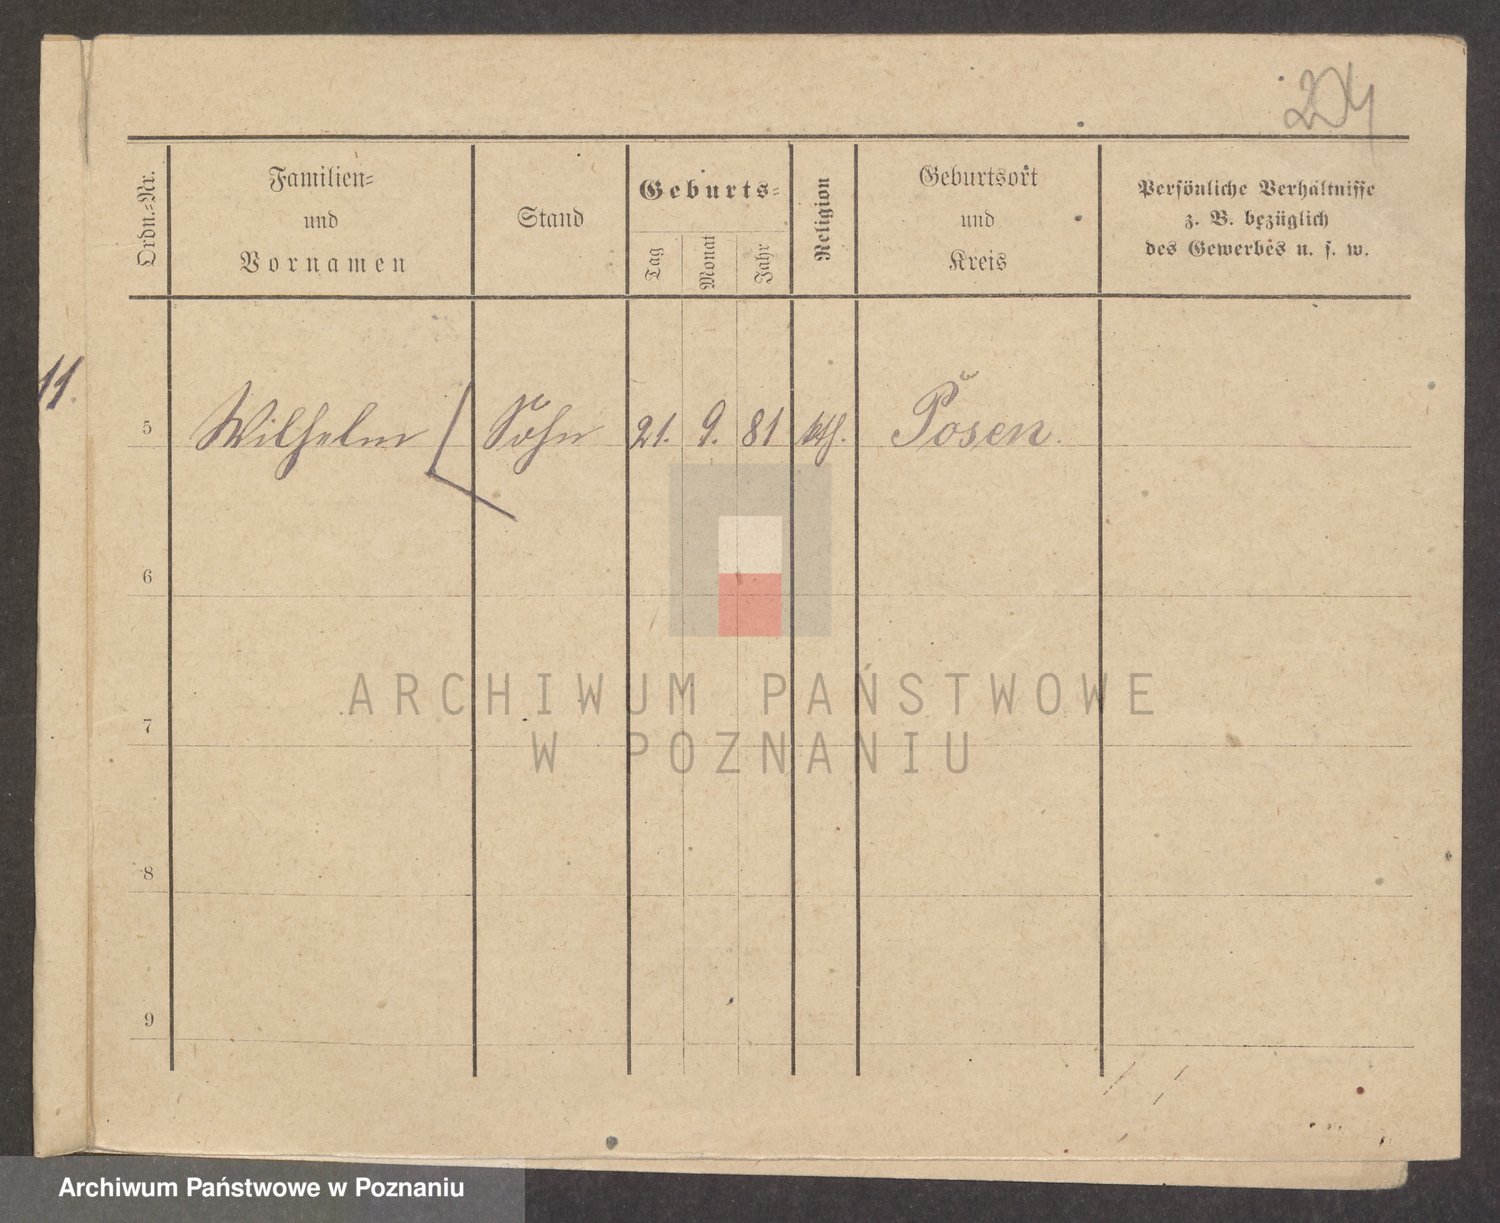 204
Ordn.-Nr.
Familien-
und
Vornamen
Stand
Geburts-
Tag
Monat
Jahr
Religion
Geburtsort
und
Kreis
Persönliche Verhältnisse
z. B. bezüglich
des Gewerbes u. s. w.
11.
5 Wilhelm Sohn 21. 9. 81 kth. Posen.
6
7
8
9
ARCHIWUM PAŃSTWOWE
W POZNANIU
Archiwum Państwowe w Poznaniu